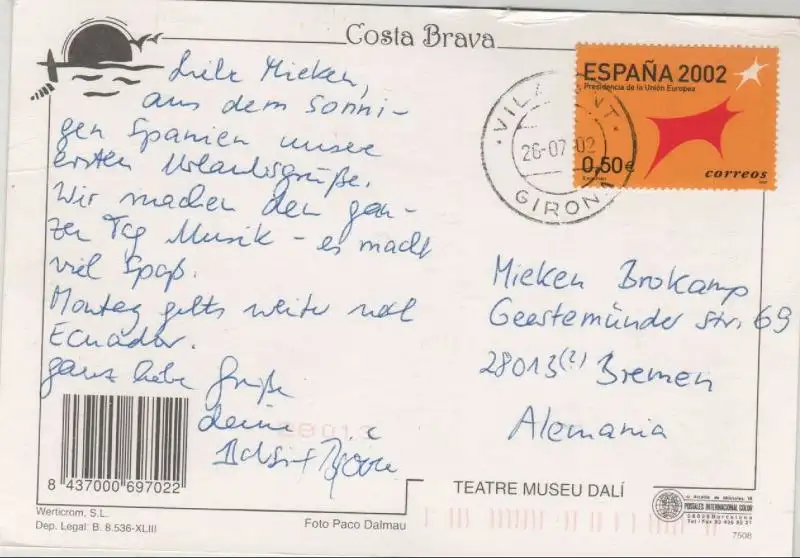 Costa Brava
Liebe Mieken,
aus dem sonni-
gen Spanien unsere
ersten Urlaubsgrüße.
Wir machen den gan-
zen Tag Musik - es macht
viel Spaß.
Montag gehts weiter nach
Ecuador.
ganz liebe Grüße
deine
ESPAÑA 2002
Presidencia de la Unión Europea
0,50€
correos
26-07-02
GIRONA
Mieken Brokamp
Geestemünder Str. 69
28013(?) Bremen
Alemania
28013
8 437000 697022
Werticrom, S.L.
Dep. Legal: B. 8.536-XLIII
Foto Paco Dalmau
TEATRE MUSEU DALÍ
POSTALES INTERNACIONAL COLOR
7508